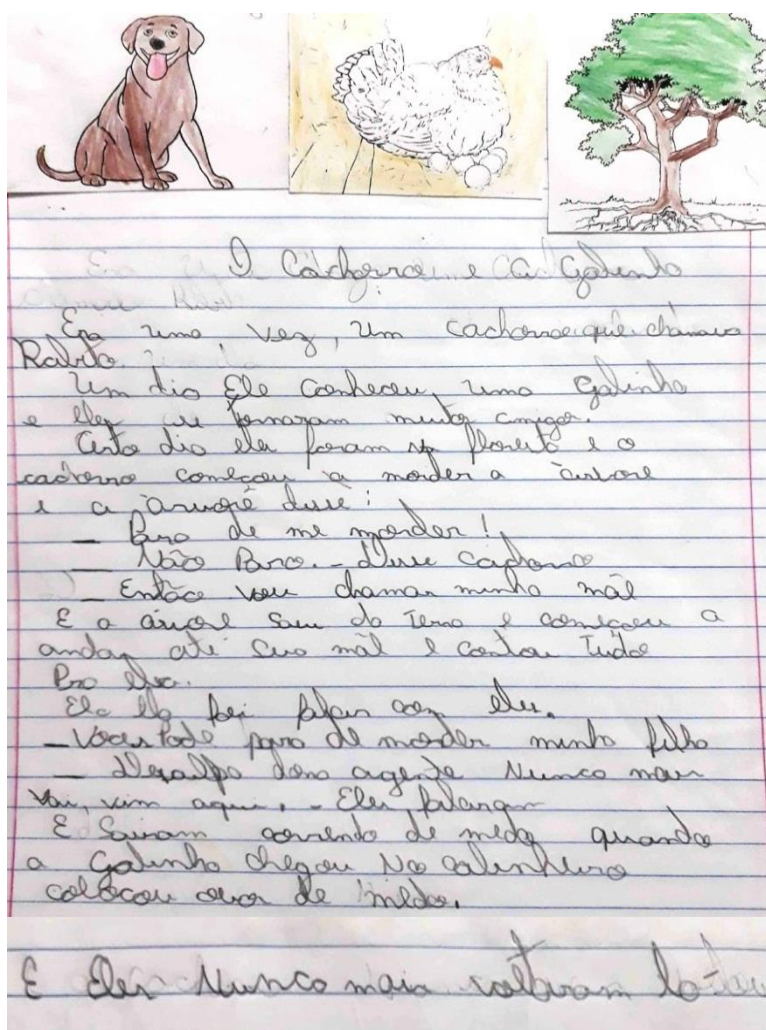 O Cachorro e a Galinha
Era uma vez, um cachorro que chamava
Rabito.
Um dia Ele conheceu, uma galinha
e eles se tornaram muito amigos.
Certo dia eles foram na floresta e o
cachorro começou a morder a árvore
e a árvore disse:
– Para de me morder!
– Não Paro. – Disse cachorro
– Então vou chamar minha mãe
E a árvore saiu da Terra e começou a
andar até sua mãe e contou Tudo
Pra ela.
Ela foi falar com eles.
– Voces Pode para de morder minha filha
– Desculpa dona agente Nunca mais
vai, vim aqui. – Eles falaram
E Sairam correndo de medo quando
a Galinha chegou No galinheiro
colocou ovos de medo.
E Eles Nunca mais voltaram lá